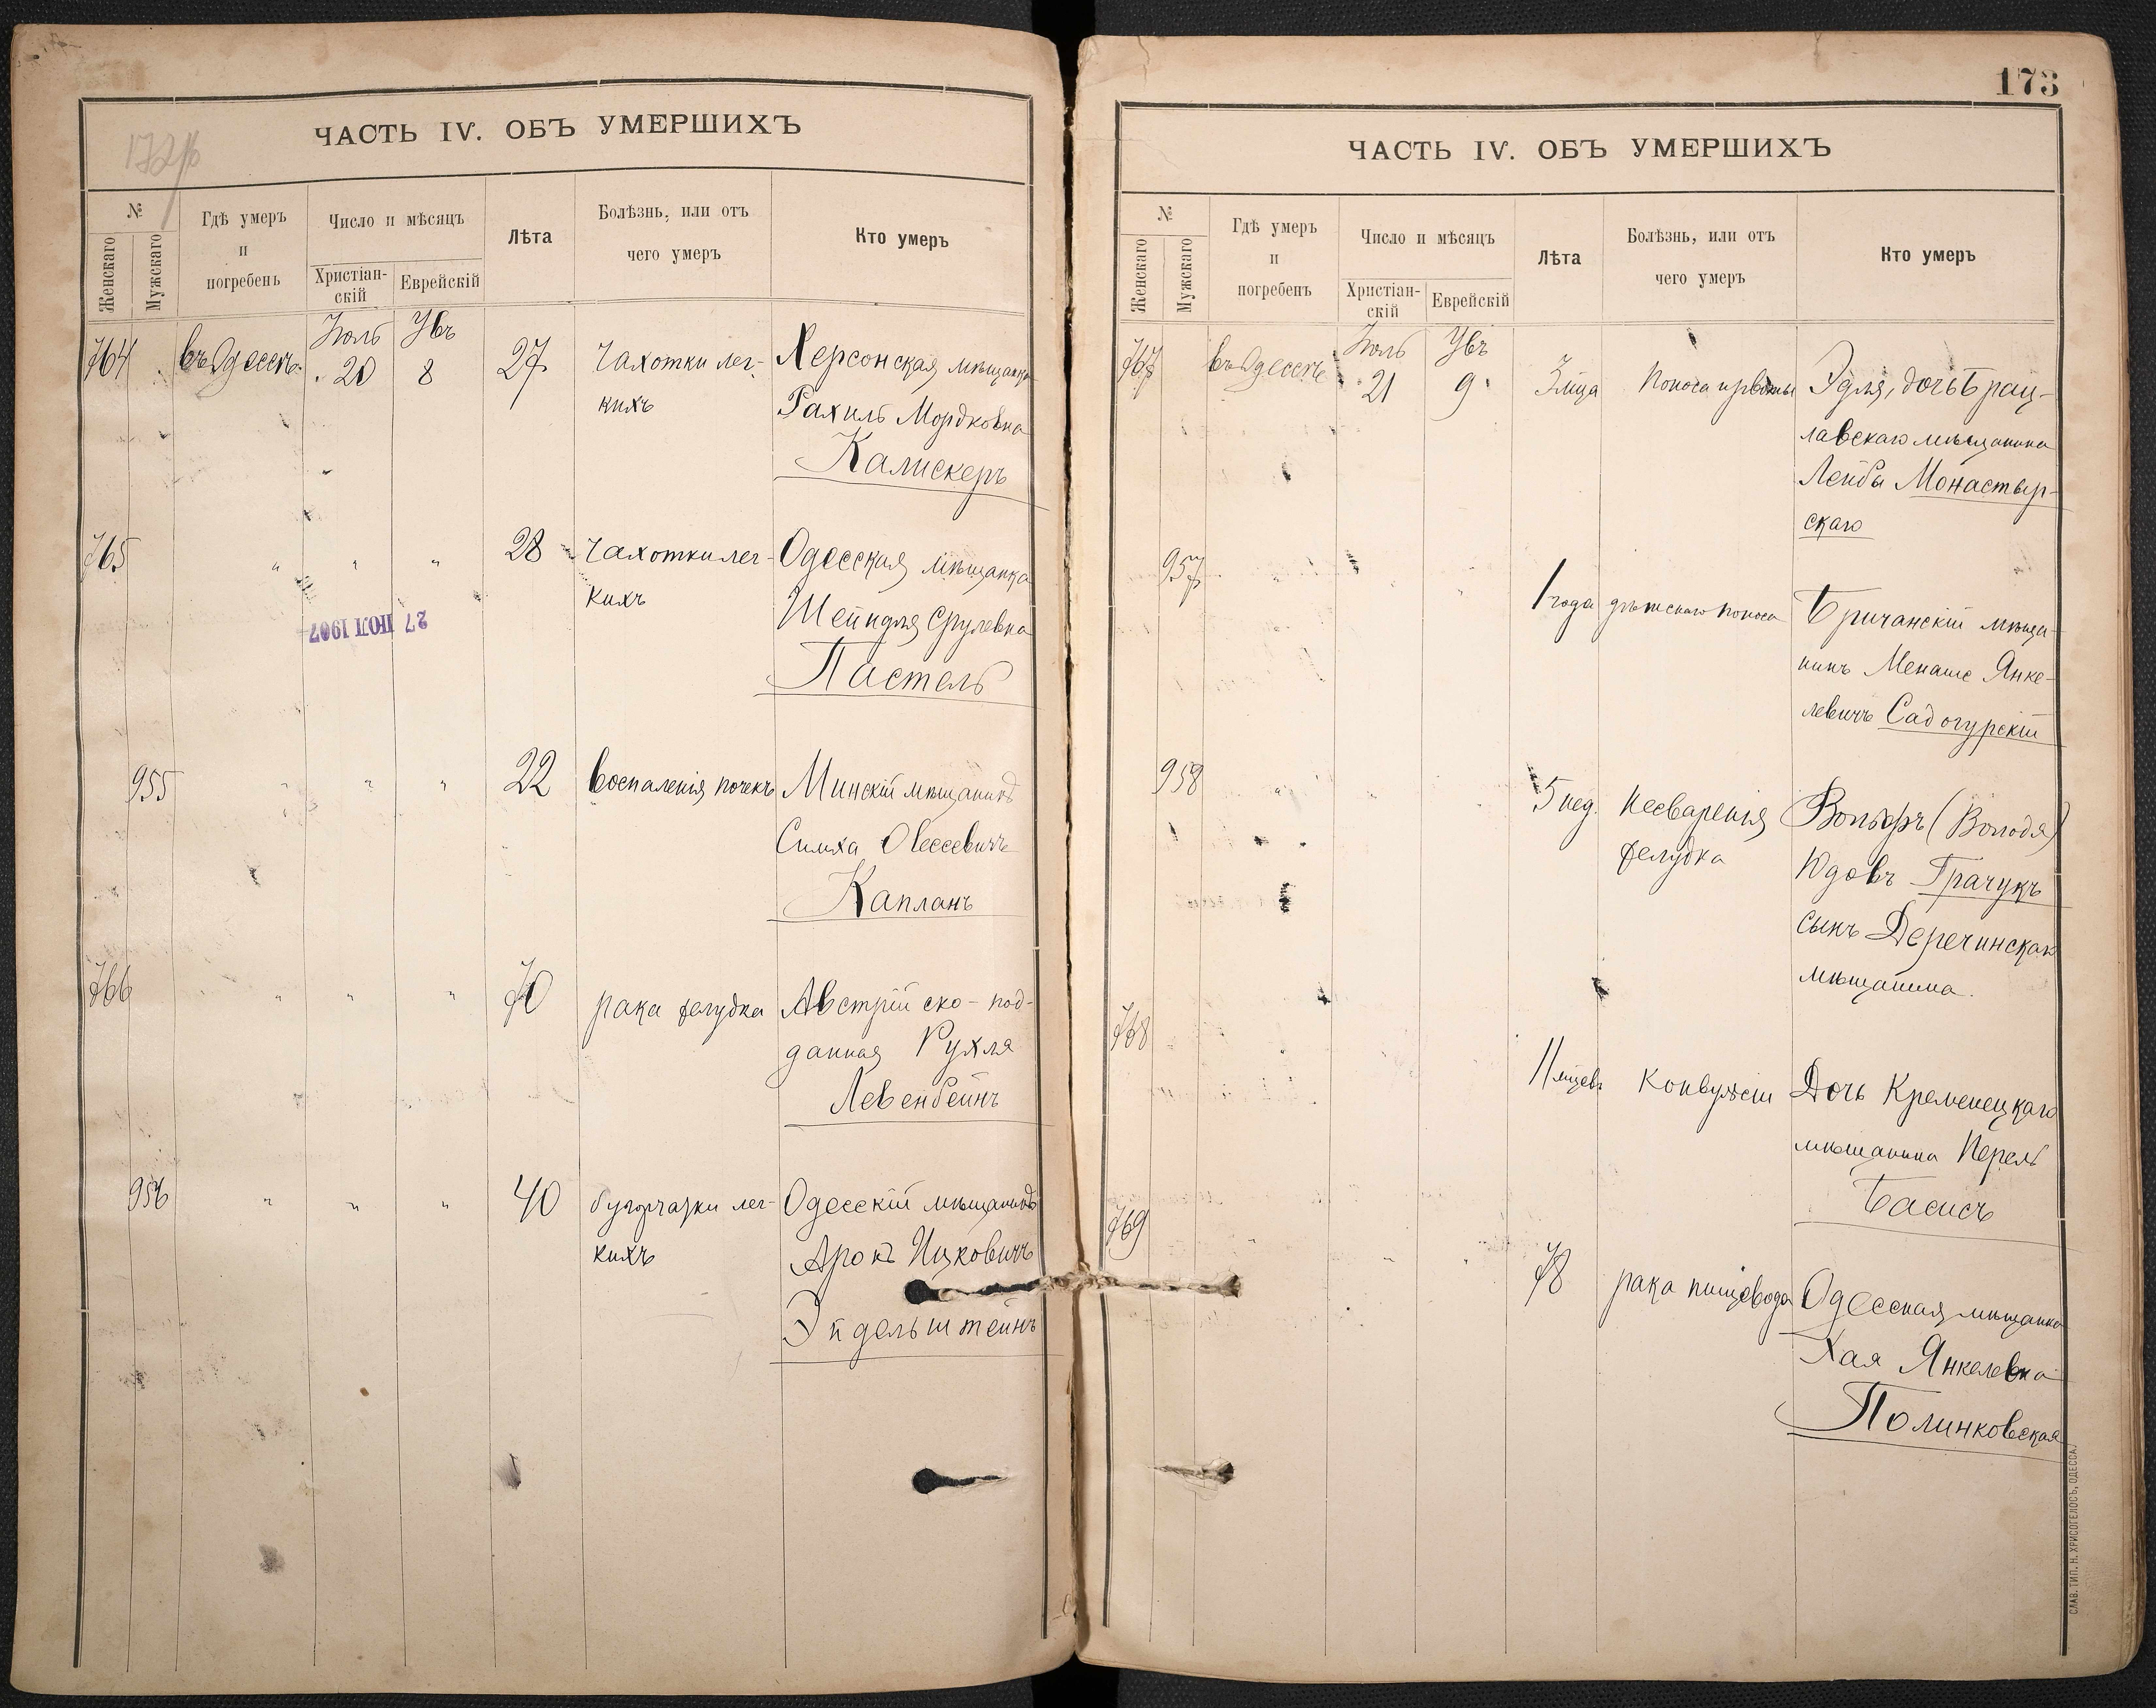 ЧАСТЬ IV. ОБЪ УМЕРШИХЪ
№
Женскаго
Мужскаго
Гдѣ умеръ
и
погребенъ
Число и мѣсяцъ
Христіан-
скій
Еврейскій
Лѣта
Болѣзнь, или отъ
чего умеръ
Кто умеръ
764 въ Одессѣ Іюль 20 Увъ 8 27 Чахотки лег- Херсонская мѣщанка
кихъ Рахиль Мордковна
Калискеръ
765 " " " 28 Чахотки лег- Одесская мѣщанка
кихъ Шейндля Срулевна
27 ІЮЛ 1907
Пастель
955 " " " 22 Воспаленія почекъ Минскій мѣщанинъ
Симха Овсеевичъ
Капланъ
766 " " " 70 рака желудка Австрійско-под-
данная Рухля
Левенбейнъ
956 " " " 40 бугорчатки лег- Одесскій мѣщанинъ
кихъ Аронъ Ицковичъ
Эйдельштейнъ
173
ЧАСТЬ IV. ОБЪ УМЕРШИХЪ
№
Женскаго
Мужскаго
Гдѣ умеръ
и
погребенъ
Число и мѣсяцъ
Христіан-
скій
Еврейскій
Лѣта
Болѣзнь, или отъ
чего умеръ
Кто умеръ
767 въ Одессѣ Іюль 21 Увъ 9 3 мца Поноса и рвоты Эдля, дочь Брац-
лавскаго мѣщанина
Лейбы Монастыр-
скаго
957 1 года дѣтскаго поноса Бричанскій мѣща-
нинъ Менаше Янке-
левичъ Садогурскій
958 5 нед. Несваренія Вольфъ (Володя)
желудка Юдовъ Грачукъ
сынъ Деречинскаго
мѣщанина.
768 11 мцевъ Конвульсіи Дочь Кременецкаго
мѣщанина Перель
Басисъ
769 78 рака пищевода Одесская мѣщанка
Хая Янкелевна
Полинковская
СЛАВ. ТИП. Н. ХРИСОГЕЛОСЪ, ОДЕССА.